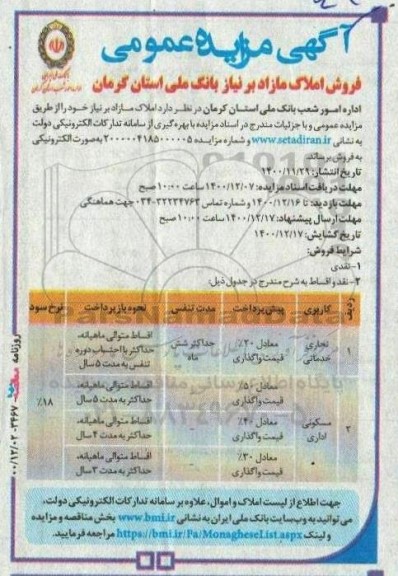 آگهی مزایده عمومی
فروش املاک مازاد بر نیاز بانک ملی استان کرمان
اداره امور شعب بانک ملی استان کرمان در نظر دارد املاک مازاد بر نیاز خود را از طریق
مزایده عمومی و با جزئیات مندرج در اسناد مزایده با بهره گیری از سامانه تدارکات الکترونیکی دولت
به نشانی www.setadiran.ir و شماره مزایده ۲۰۰۰۰۰۴۱۸۵۰۰۰۰۰۵ به صورت الکترونیکی
به فروش برساند.
تاریخ انتشار: ۱۴۰۰/۱۱/۲۹
مهلت دریافت اسناد مزایده: ۱۴۰۰/۱۲/۰۷ ساعت ۱۰:۰۰ صبح
مهلت بازدید: تا ۱۴۰۰/۱۲/۱۶ و شماره تماس ۳۲۲۳۴۷۶۳-۰۳۴ جهت هماهنگی
مهلت ارسال پیشنهاد: ۱۴۰۰/۱۲/۱۷ ساعت ۱۰:۰۰ صبح
تاریخ گشایش: ۱۴۰۰/۱۲/۱۷
شرایط فروش:
۱- نقدی
۲- نقد و اقساط به شرح مندرج در جدول ذیل:
ردیف کاربری پیش پرداخت مدت تنفس نحوه بازپرداخت نرخ سود
۱ تجاری خدماتی معادل ۲۰٪ قیمت واگذاری حداکثر شش ماه اقساط متوالی ماهیانه، حداکثر با احتساب دوره تنفس به مدت ۵ سال
۲ مسکونی اداری معادل ۵۰٪ قیمت واگذاری اقساط متوالی ماهیانه، حداکثر به مدت ۵ سال ۱۸٪
معادل ۴۰٪ قیمت واگذاری اقساط متوالی ماهیانه، حداکثر به مدت ۴ سال
معادل ۳۰٪ قیمت واگذاری اقساط متوالی ماهیانه، حداکثر به مدت ۳ سال
جهت اطلاع از لیست املاک و اموال، علاوه بر سامانه تدارکات الکترونیکی دولت،
می توانید به وب سایت بانک ملی ایران به نشانی www.bmi.ir بخش مناقصه و مزایده
و لینک https://bmi.ir/Fa/MonagheseList.aspx مراجعه فرمایید.
روزنامه
۰۰/۱۲/۰۲-۳۴۶۷
ParsNamadData